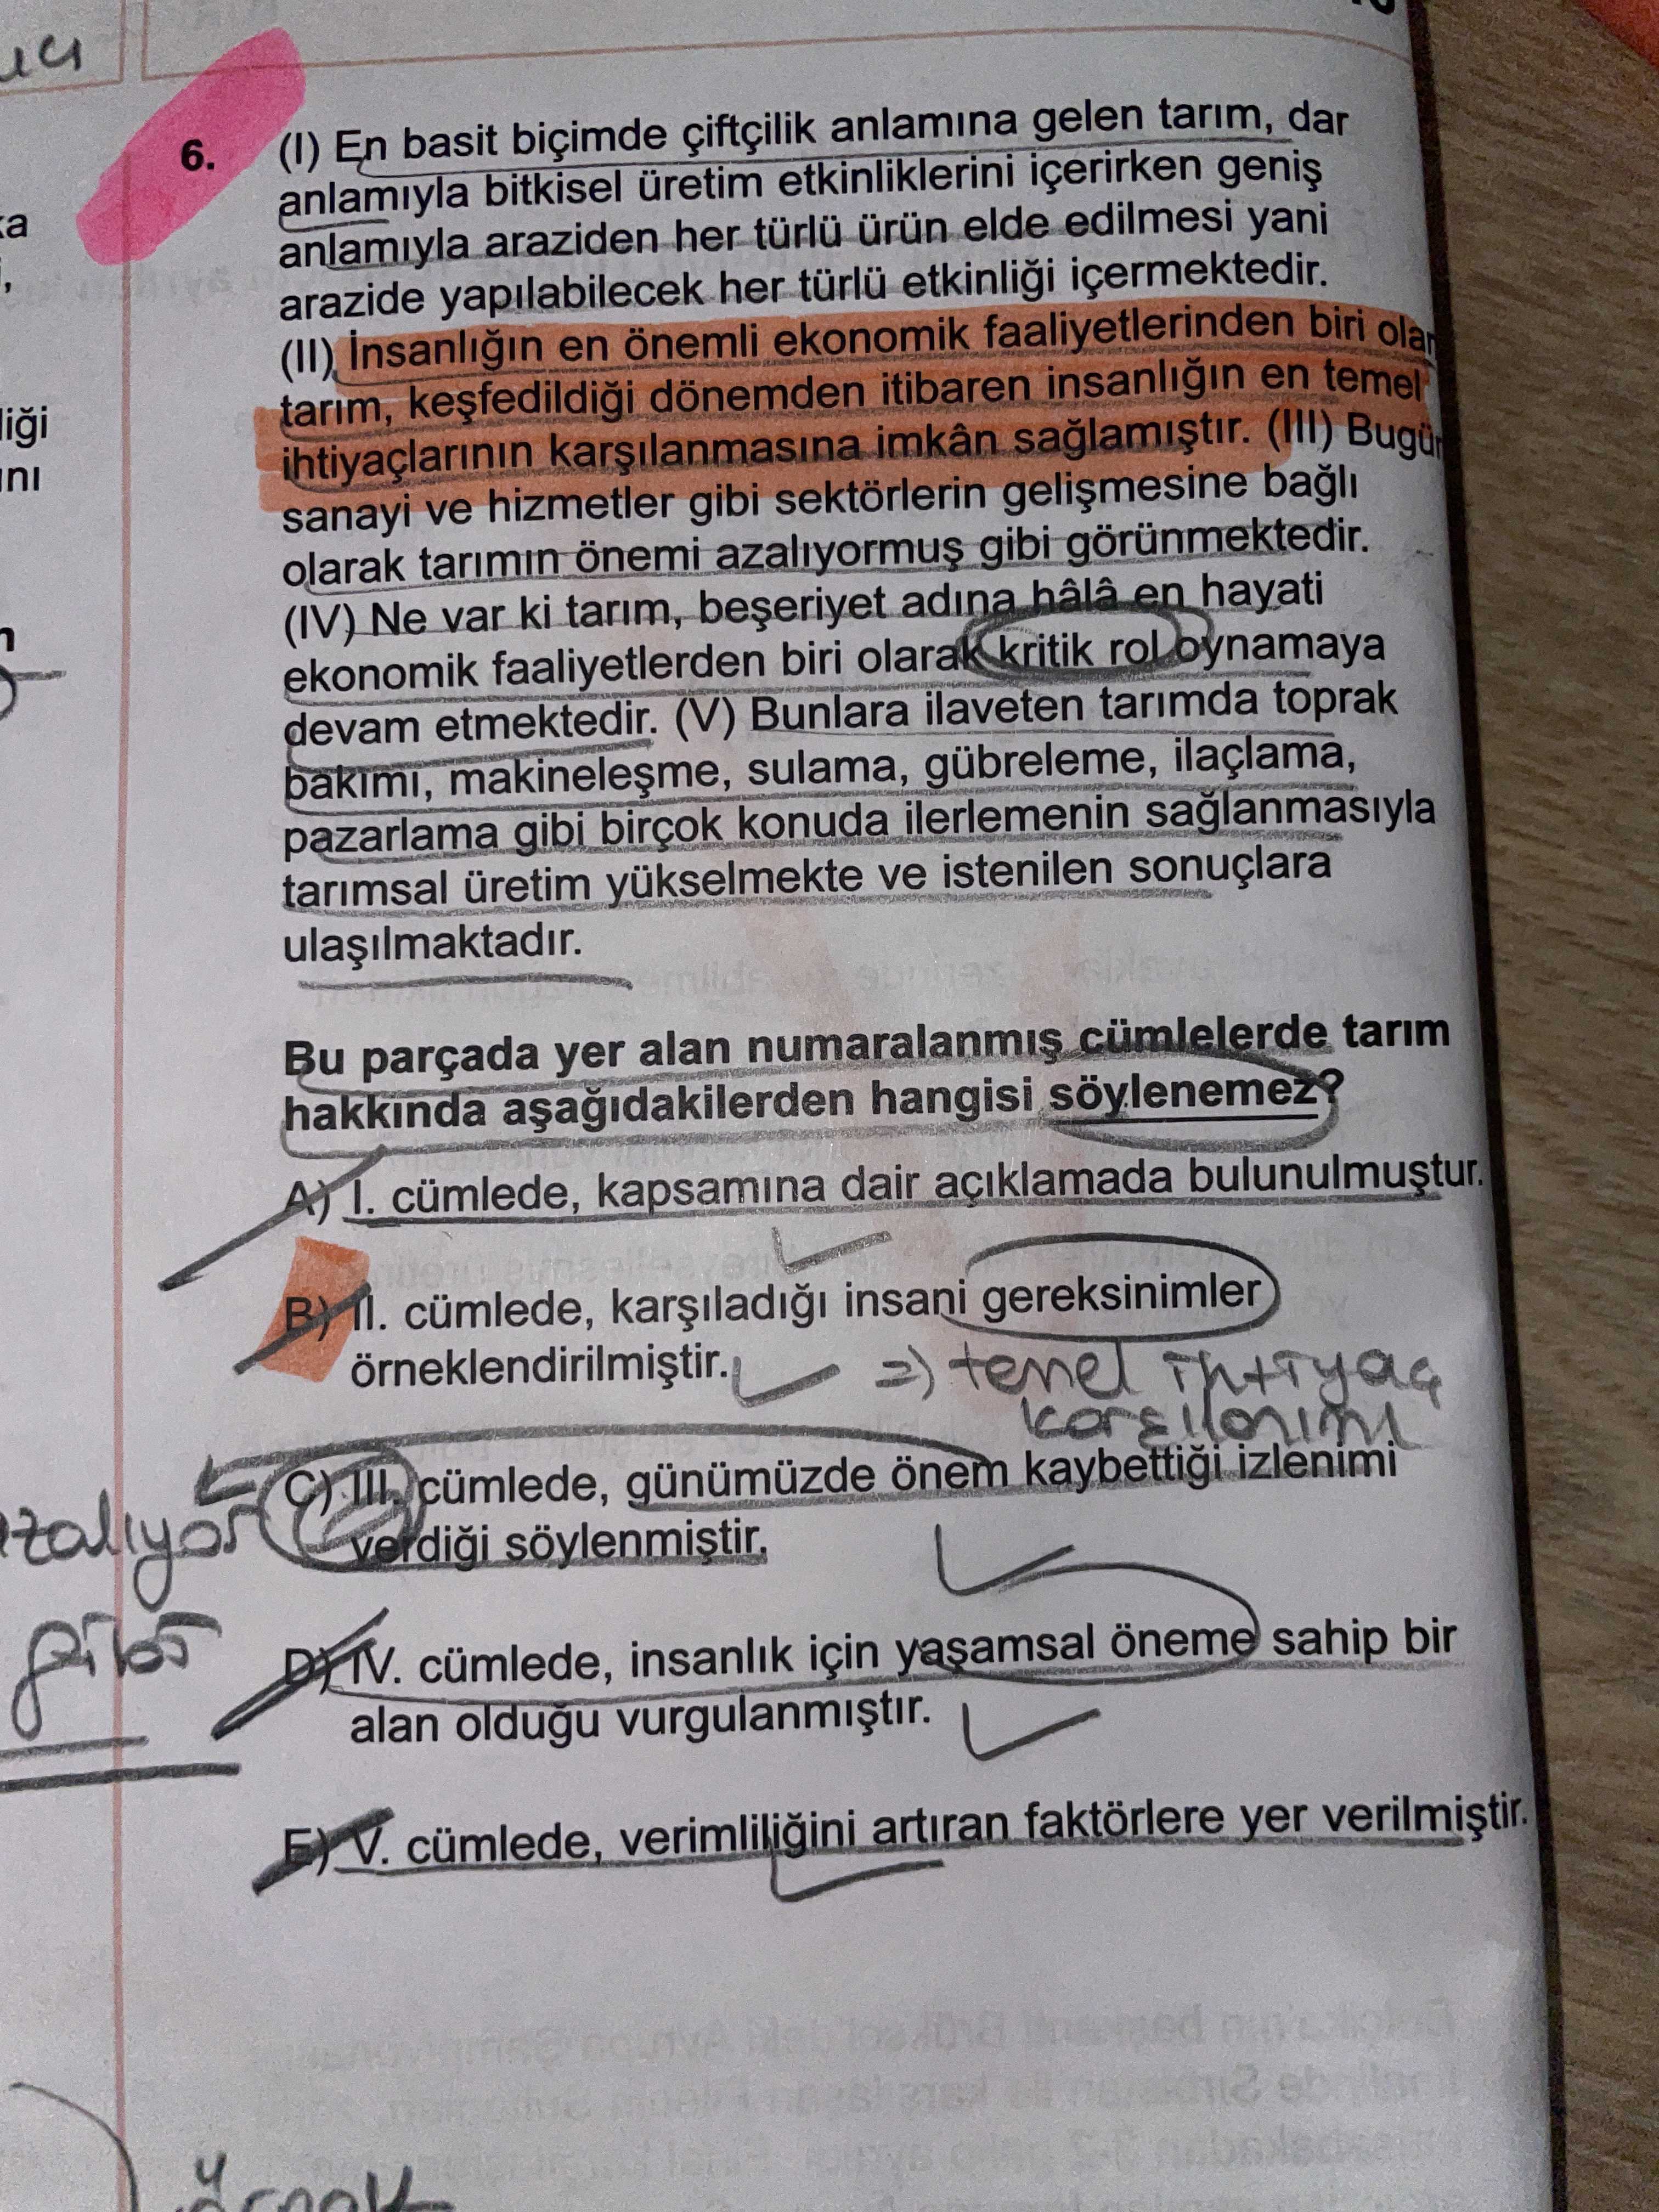 6.
(I) En basit biçimde çiftçilik anlamına gelen tarım, dar
anlamıyla bitkisel üretim etkinliklerini içerirken geniş
anlamıyla araziden her türlü ürün elde edilmesi yani
arazide yapılabilecek her türlü etkinliği içermektedir.
(II) İnsanlığın en önemli ekonomik faaliyetlerinden biri olan
tarım, keşfedildiği dönemden itibaren insanlığın en temel
ihtiyaçlarının karşılanmasına imkân sağlamıştır. (III) Bugün
sanayi ve hizmetler gibi sektörlerin gelişmesine bağlı
olarak tarımın önemi azalıyormuş gibi görünmektedir.
(IV) Ne var ki tarım, beşeriyet adına hâlâ en hayati
ekonomik faaliyetlerden biri olarak kritik rol oynamaya
devam etmektedir. (V) Bunlara ilaveten tarımda toprak
bakımı, makineleşme, sulama, gübreleme, ilaçlama,
pazarlama gibi birçok konuda ilerlemenin sağlanmasıyla
tarımsal üretim yükselmekte ve istenilen sonuçlara
ulaşılmaktadır.
Bu parçada yer alan numaralanmış cümlelerde tarım
hakkında aşağıdakilerden hangisi söylenemez?
A) I. cümlede, kapsamına dair açıklamada bulunulmuştur.
B) II. cümlede, karşıladığı insani gereksinimler
örneklendirilmiştir. => temel ihtiyaç
karşılanımı
C) III. cümlede, günümüzde önem kaybettiği izlenimi
verdiği söylenmiştir.
azalıyor
gibi
D) IV. cümlede, insanlık için yaşamsal öneme sahip bir
alan olduğu vurgulanmıştır.
E) V. cümlede, verimliliğini artıran faktörlere yer verilmiştir.
örnek